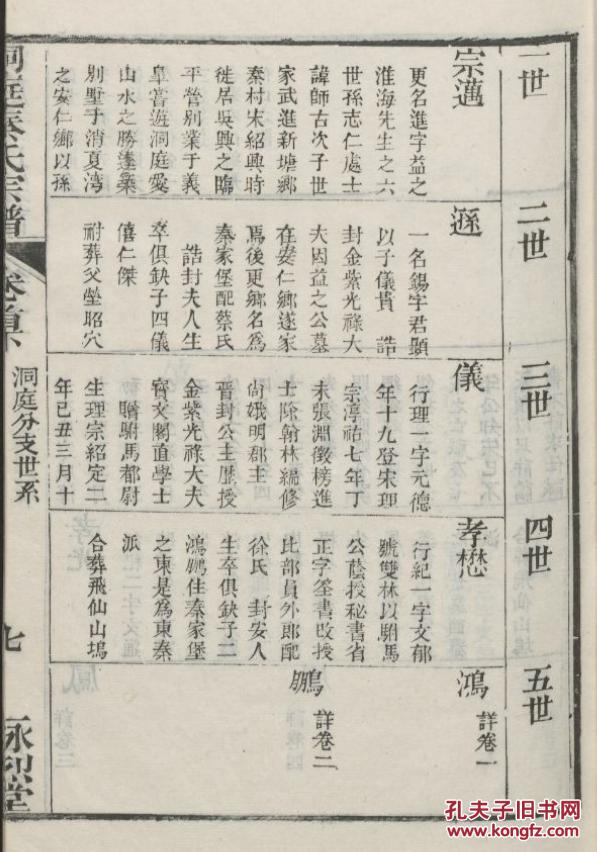 一世
宗邁
更名進字益之
淮海先生之六
世孫志仁處士
諱師古次子世
家武進新塘鄉
秦村宋紹興時
徙居吳興之臨
平營別業于義
皐嘗遊洞庭愛
山水之勝遂築
別墅于消夏湾
之安仁鄉以孫
二世
遜
一名錫字君顯
以子儀貴 誥
封金紫光祿大
夫因益之公墓
在安仁鄉遂家
焉後更鄉名為
秦家堡配蔡氏
誥封夫人生
卒俱缺子四儀
僖仁傑
祔葬父塋昭穴
三世
儀
行理一字元德
年十九登宋理
宗淳祐七年丁
未張淵微榜進
士除翰林編修
尚娥明郡主
晉封公主歷授
金紫光祿大夫
寶文閣直學士
贈駙馬都尉
生理宗紹定二
年己丑三月十
四世
孝懋
行紀一字文郁
號雙林以駙馬
公蔭授秘書省
正字筌書改授
比部員外郎配
徐氏 封安人
生卒俱缺子二
鴻鵬住秦家堡
之東是為東秦
派
合葬飛仙山塢
五世
鴻
詳卷一
鵬
詳卷二
洞庭秦氏宗譜
卷首下
洞庭分支世系
七
永烈堂
孔夫子旧书网
www.kongfz.com